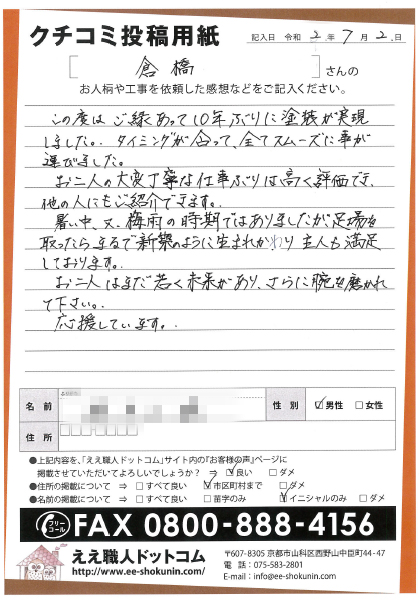 クチコミ投稿用紙
記入日 令和 2 年 7 月 2 日
[ 倉橋 ] さんの
お人柄や工事を依頼した感想などをご記入ください。
この度はご縁あって10年ぶりに塗装が実現
しました。タイミングが合って、全てスムーズに事が
運びました。
お二人の大変丁寧な仕事ぶりは高く評価でき、
他の人にもご紹介できます。
暑い中、又、梅雨の時期ではありましたが足場を
取ったらまるで新築のように生まれかわり主人も満足
しております。
お二人はまだ若く未来があり、さらに腕を磨かれ
て下さい。
応援しています。
名前
性別 ☑男性 □女性
住所
●上記内容を、「ええ職人ドットコム」サイト内の『お客様の声』ページに
掲載させていただいてよろしいでしょうか? ⇒ ☑良い □ダメ
●住所の掲載について ⇒ □すべて良い ☑市区町村まで □ダメ
●名前の掲載について ⇒ □すべて良い □苗字のみ ☑イニシャルのみ □ダメ
フリーコール FAX 0800-888-4156
ええ職人ドットコム
http://www.ee-shokunin.com/
〒607-8305 京都市山科区西野山中臣町44-47
電 話：075-583-2801
E-mail：info@ee-shokunin.com